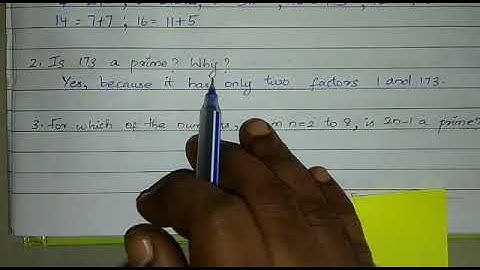 14 = 7+7 ; 16 = 11+5
2. Is 173 a prime? Why?
Yes, because it has only two factors 1 and 173.
3. For which of the n=2 to 8, is 2n-1 a prime?